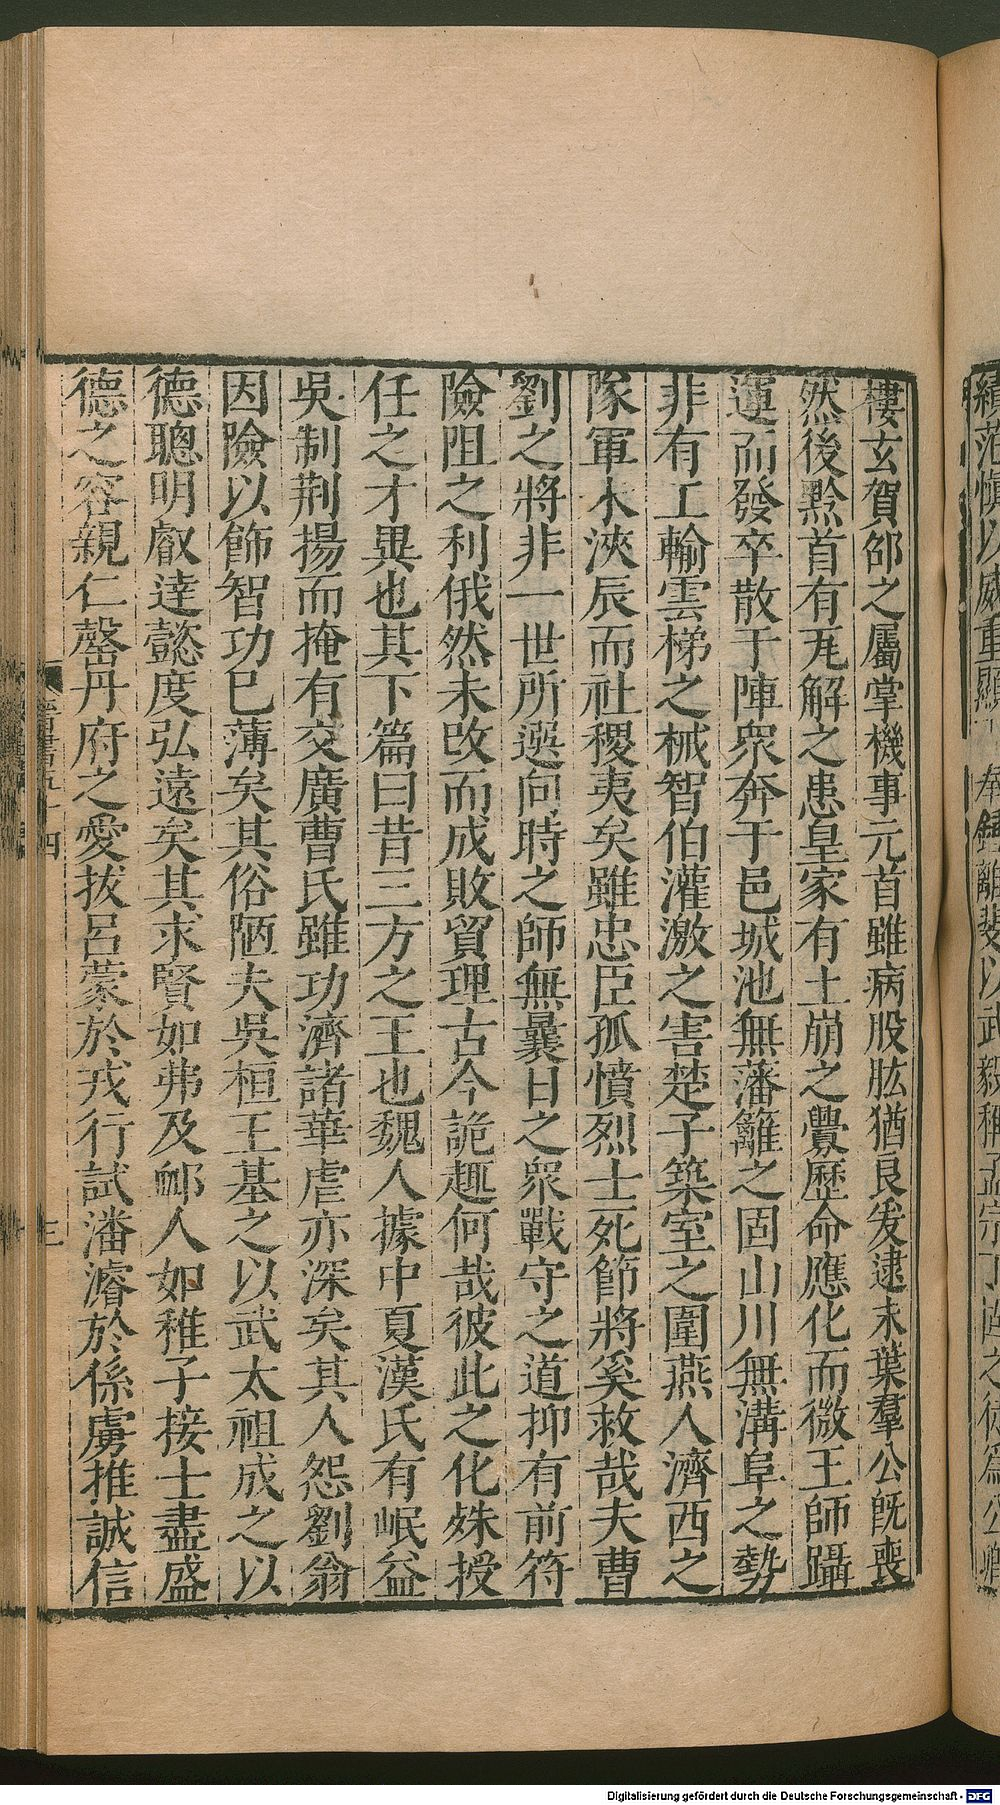 績范慎以威重顯丁奉鍾離斐以武毅稱孟宗丁固之徒爲公卿
樓玄賀邵之屬掌機事元首雖病股肱猶良爰逮末葉羣公旣喪
然後黔首有瓦解之患皇家有土崩之釁歷命應化而微王師躡
運而發卒散于陣衆奔于邑城池無藩籬之固山川無溝阜之勢
非有工輸雲梯之械智伯灌激之害楚子築室之圍燕人濟西之
隊軍未浹辰而社稷夷矣雖忠臣孤憤烈士死節將奚救哉夫曹
劉之將非一世所選向時之師無曩日之衆戰守之道抑有前符
險阻之利俄然未改而成敗貿理古今詭趣何哉彼此之化殊授
任之才異也其下篇曰昔三方之王也魏人據中夏漢氏有岷益
吳制荆揚而掩有交廣曹氏雖功濟諸華虐亦深矣其人怨劉翁
因險以飾智功已薄矣其俗陋夫吳桓王基之以武太祖成之以
德聰明叡達懿度弘遠矣其求賢如弗及䘏人如稚子接士盡盛
德之容親仁罄丹府之愛拔呂蒙於戎行試潘濬於係虜推誠信
晉書五十四
三
Digitalisierung gefördert durch die Deutsche Forschungsgemeinschaft - DFG